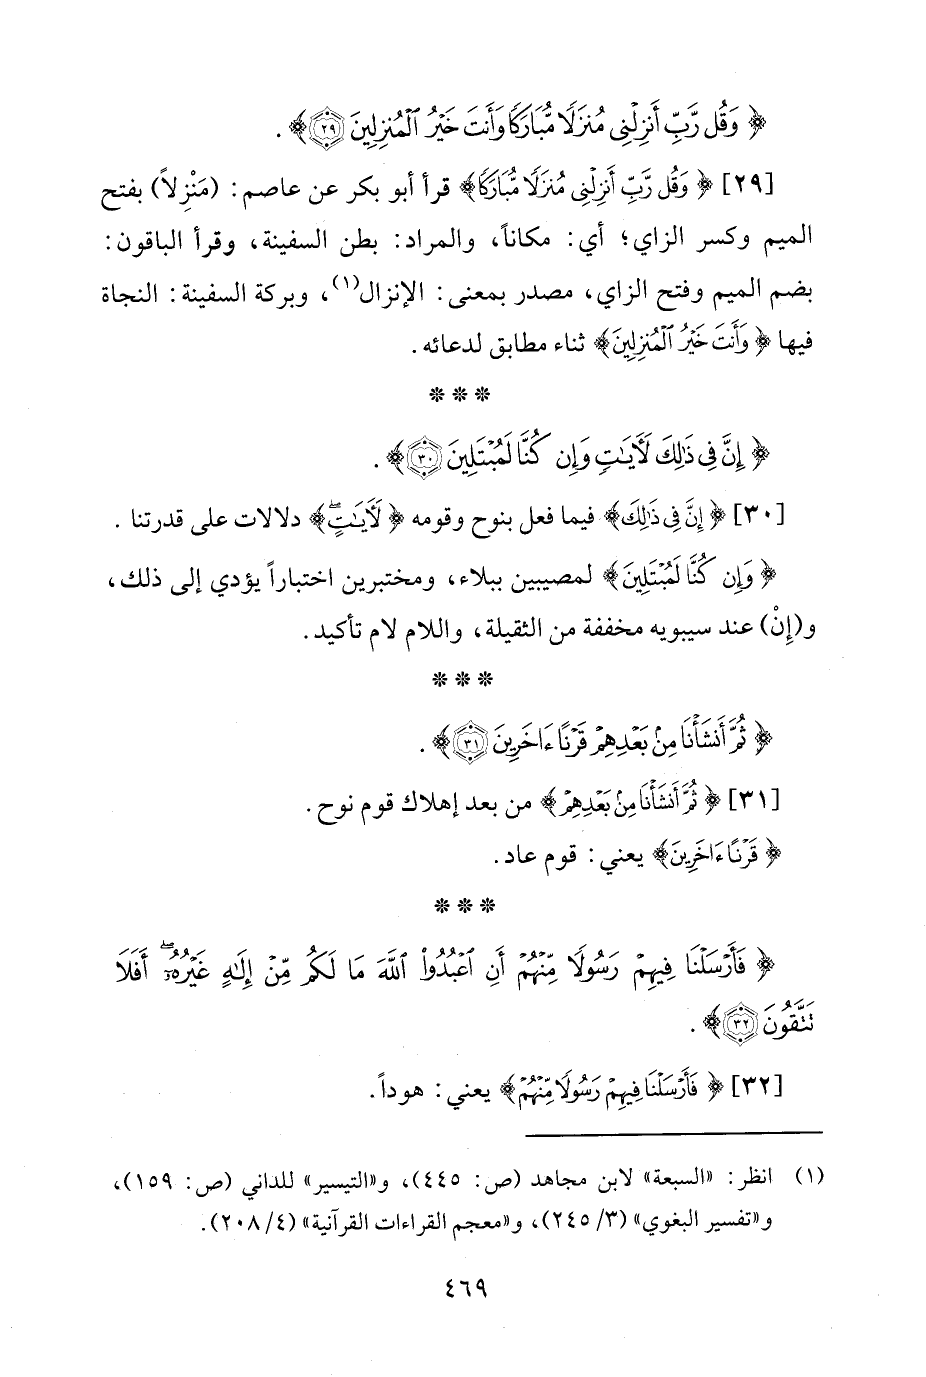 ﴿ وَقُل رَّبِّ أَنزِلْنِي مُنزَلًا مُّبَارَكًا وَأَنتَ خَيْرُ ٱلْمُنزِلِينَ ۝٢٩﴾ .
[٢٩] ﴿ وَقُل رَّبِّ أَنزِلْنِي مُنزَلًا مُّبَارَكًا﴾ قرأ أبو بكر عن عاصم: (مَنْزِلاً) بفتح
الميم وكسر الزاي؛ أي: مكاناً، والمراد: بطن السفينة، وقرأ الباقون:
بضم الميم وفتح الزاي، مصدر بمعنى: الإنزال(١)، وبركة السفينة: النجاة
فيها ﴿ وَأَنتَ خَيْرُ ٱلْمُنزِلِينَ﴾ ثناء مطابق لدعائه.
* * *
﴿ إِنَّ فِي ذَٰلِكَ لَأَيَٰتٍ وَإِن كُنَّا لَمُبْتَلِينَ ۝٣٠﴾ .
[٣٠] ﴿ إِنَّ فِي ذَٰلِكَ﴾ فيما فعل بنوح وقومه ﴿ لَأَيَٰتٍۖ﴾ دلالات على قدرتنا .
﴿ وَإِن كُنَّا لَمُبْتَلِينَ﴾ لمصيبين ببلاء، ومختبرين اختباراً يؤدي إلى ذلك،
و(إِنْ) عند سيبويه مخففة من الثقيلة، واللام لام تأكيد.
* * *
﴿ ثُمَّ أَنشَأْنَا مِنۢ بَعْدِهِمْ قَرْنًا ءَاخَرِينَ ۝٣١﴾ .
[٣١] ﴿ ثُمَّ أَنشَأْنَا مِنۢ بَعْدِهِمْ﴾ من بعد إهلاك قوم نوح.
﴿ قَرْنًا ءَاخَرِينَ﴾ يعني: قوم عاد.
* * *
﴿ فَأَرْسَلْنَا فِيهِمْ رَسُولًا مِّنْهُمْ أَنِ ٱعْبُدُوا۟ ٱللَّهَ مَا لَكُم مِّنْ إِلَٰهٍ غَيْرُهُۥٓۖ أَفَلَا
تَتَّقُونَ ۝٣٢﴾ .
[٣٢] ﴿ فَأَرْسَلْنَا فِيهِمْ رَسُولًا مِّنْهُمْ﴾ يعني: هوداً.
(١) انظر: «السبعة» لابن مجاهد (ص: ٤٤٥)، و«التيسير» للداني (ص: ١٥٩)،
و«تفسير البغوي» (٣/ ٢٤٥)، و«معجم القراءات القرآنية» (٤/ ٢٠٨).
٤٦٩